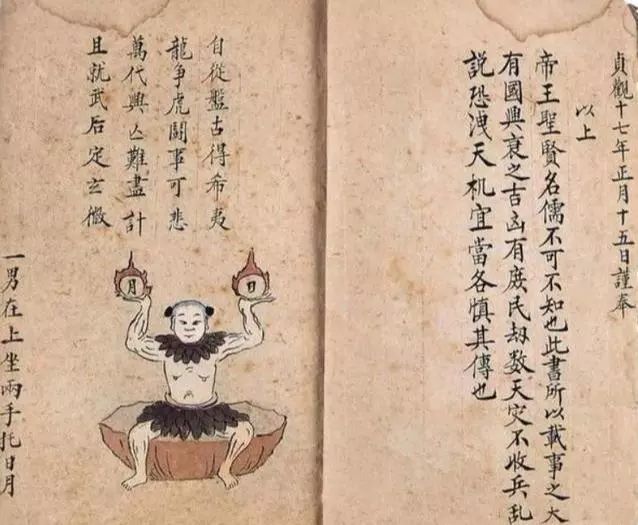 貞觀十七年正月十五日謹奉
以上
帝王聖賢名儒不可不知也此書所以載事之大
有國興衰之吉凶有庶民刼數天灾不收兵乱
説恐洩天机宜當各慎其傳也
自從盤古得希夷
龍争虎鬪事可悲
萬代興亡難盡計
且就武后定玄微
日
月
一男在上坐兩手托日月